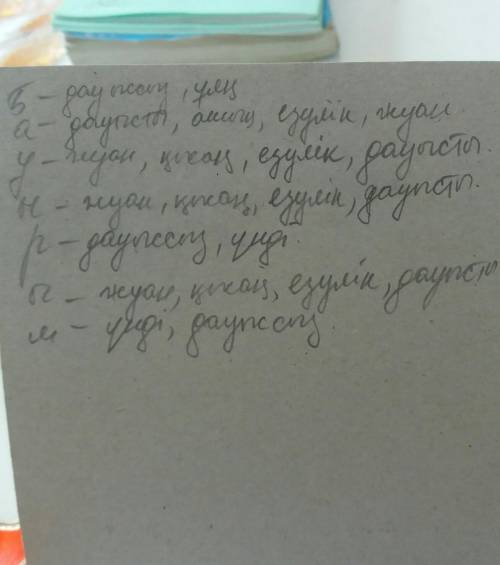 Б – дауыссыз, ұяң
а – дауысты, ашық, езулік, жуан.
у – жуан, қысаң, езулік, дауысты.
н – жуан, қысаң, езулік, дауысты.
р – дауыссыз, үнді.
ы – жуан, қысаң, езулік, дауысты
м – үнді, дауыссыз